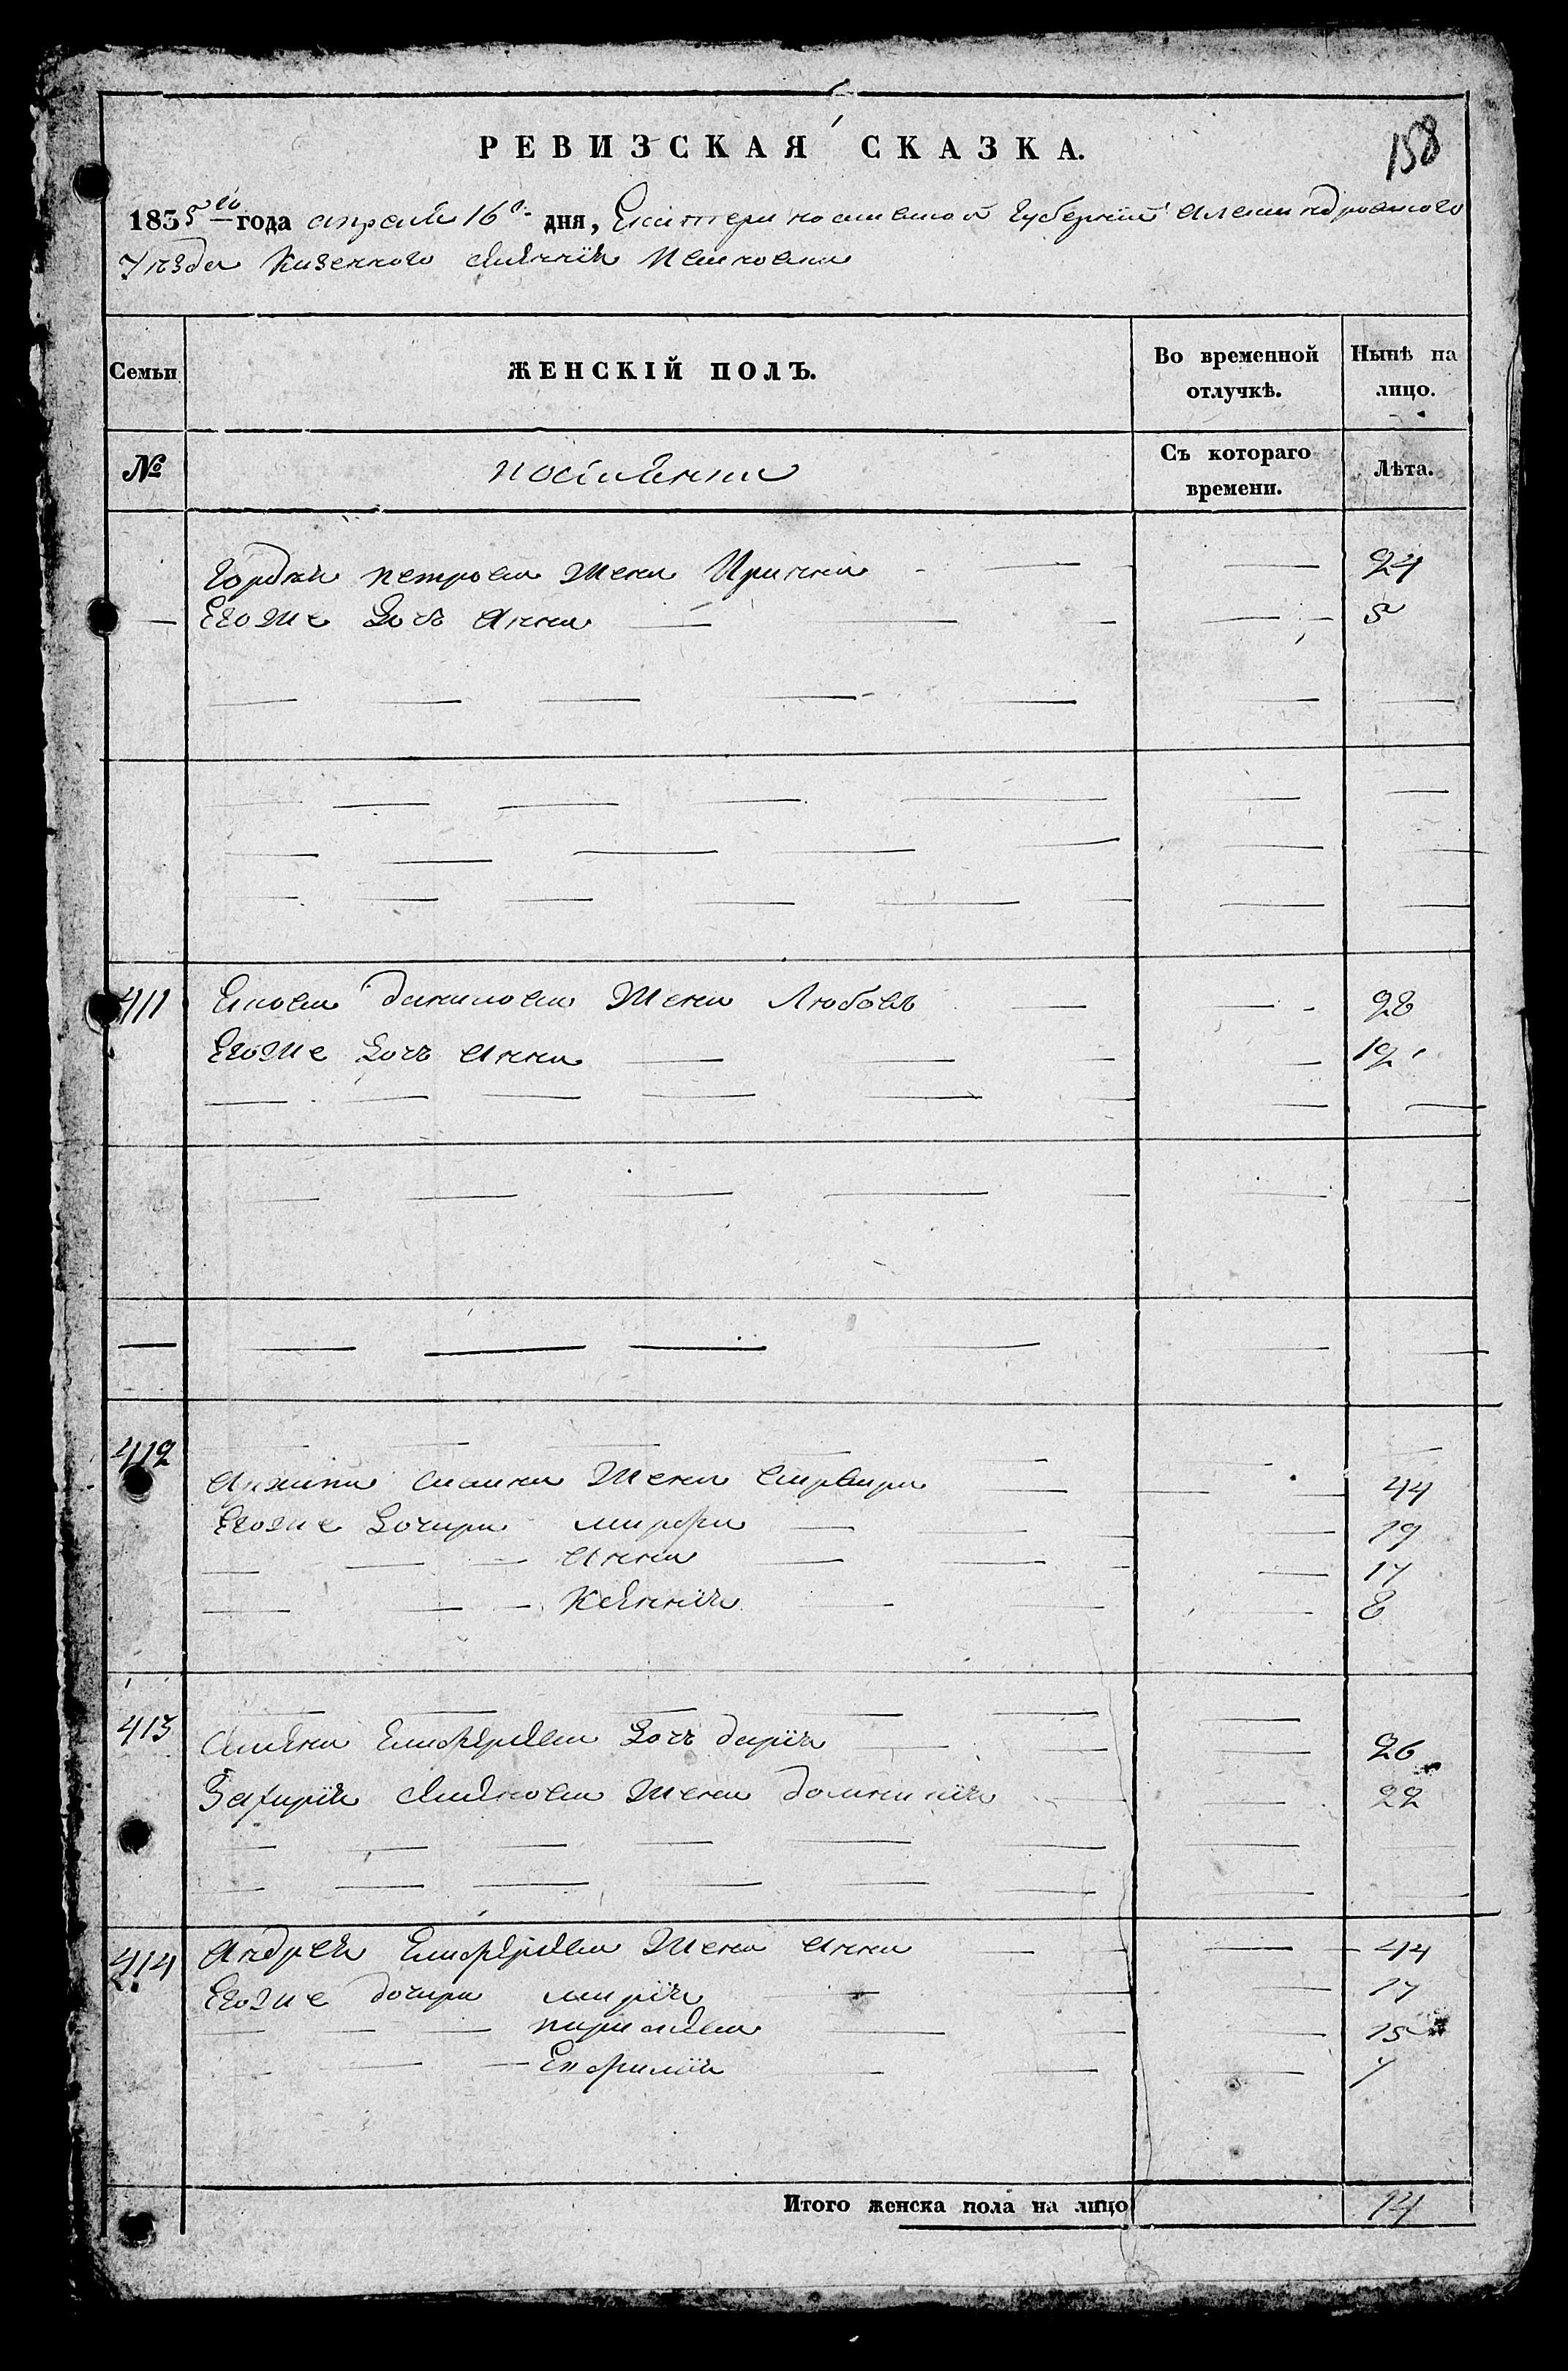 158
РЕВИЗСКАЯ СКАЗКА.
1835го года апреля 16го дня, Екатеринославской Губернии Александровского
Уезда Казенного селения
Семьи
ЖЕНСКІЙ ПОЛЪ.
Во временной отлучкѣ.
Нынѣ на лицо.
№
поселянки
Съ котораго времени.
Лѣта.
Гордея Петрова жена Ирина 24
Егоже Дочь Анна 5
411 Якова Данилова жена Любовь 28
Егоже Дочь Анна 12
412
жена Варвара 44
Егоже Дочери Марфа 19
Анна 17
Ксения 8
413
Семена Елиферьева Дочь Дария 26
Захария Семенова жена Домникия 22
414 Андрея Елиферьева жена Анна 44
Егоже дочери Мария 17
Парасковья 15
Евфимия 7
Итого женска пола на лицо 14